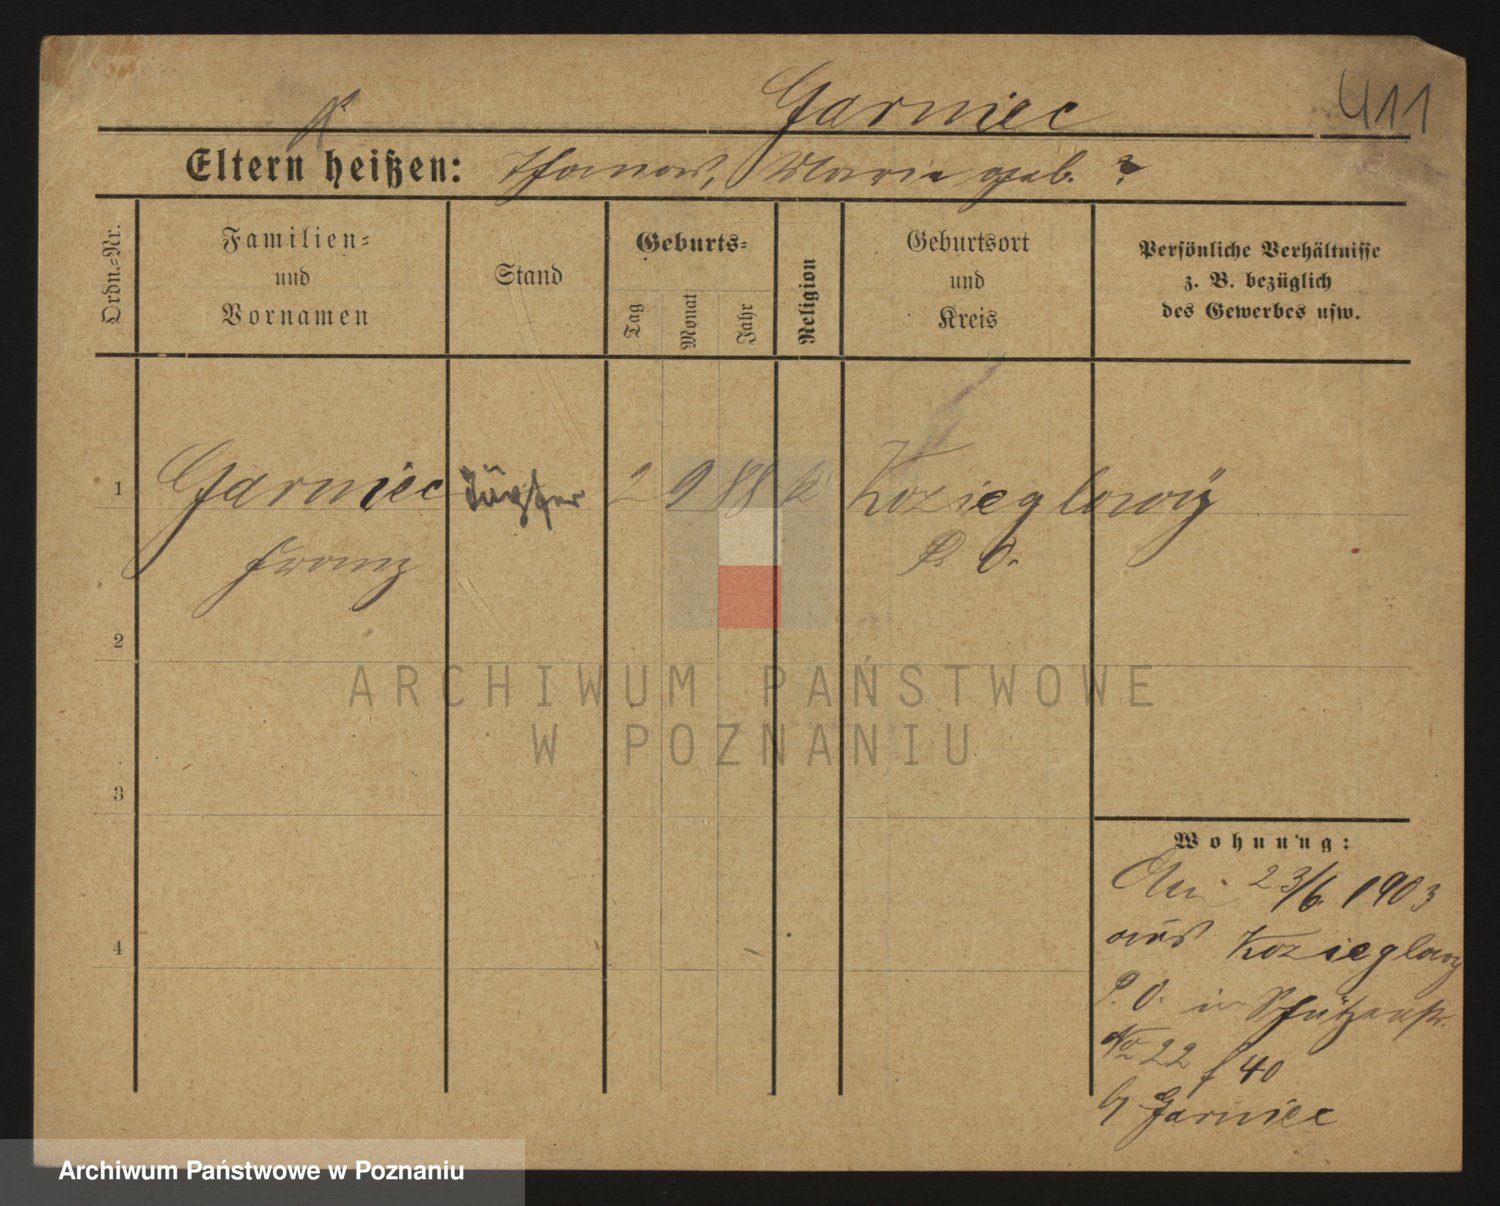 Garniec 411
Eltern heißen: Thomas, Marie geb. ?
Ordn.-Nr.
Familien-
und
Vornamen
Stand
Geburts-
Tag
Monat
Jahr
Religion
Geburtsort
und
Kreis
Persönliche Verhältnisse
z. B. bezüglich
des Gewerbes usw.
1 Garniec 2 9 88 k Kozieglowy
Franz P. O.
2
3
4
Wohnung:
Am 23/6. 1903
aus Kozieglowy
P. O. in Schützenstr.
No 22 f 40
b/ Garniec
ARCHIWUM PAŃSTWOWE
W POZNANIU
Archiwum Państwowe w Poznaniu